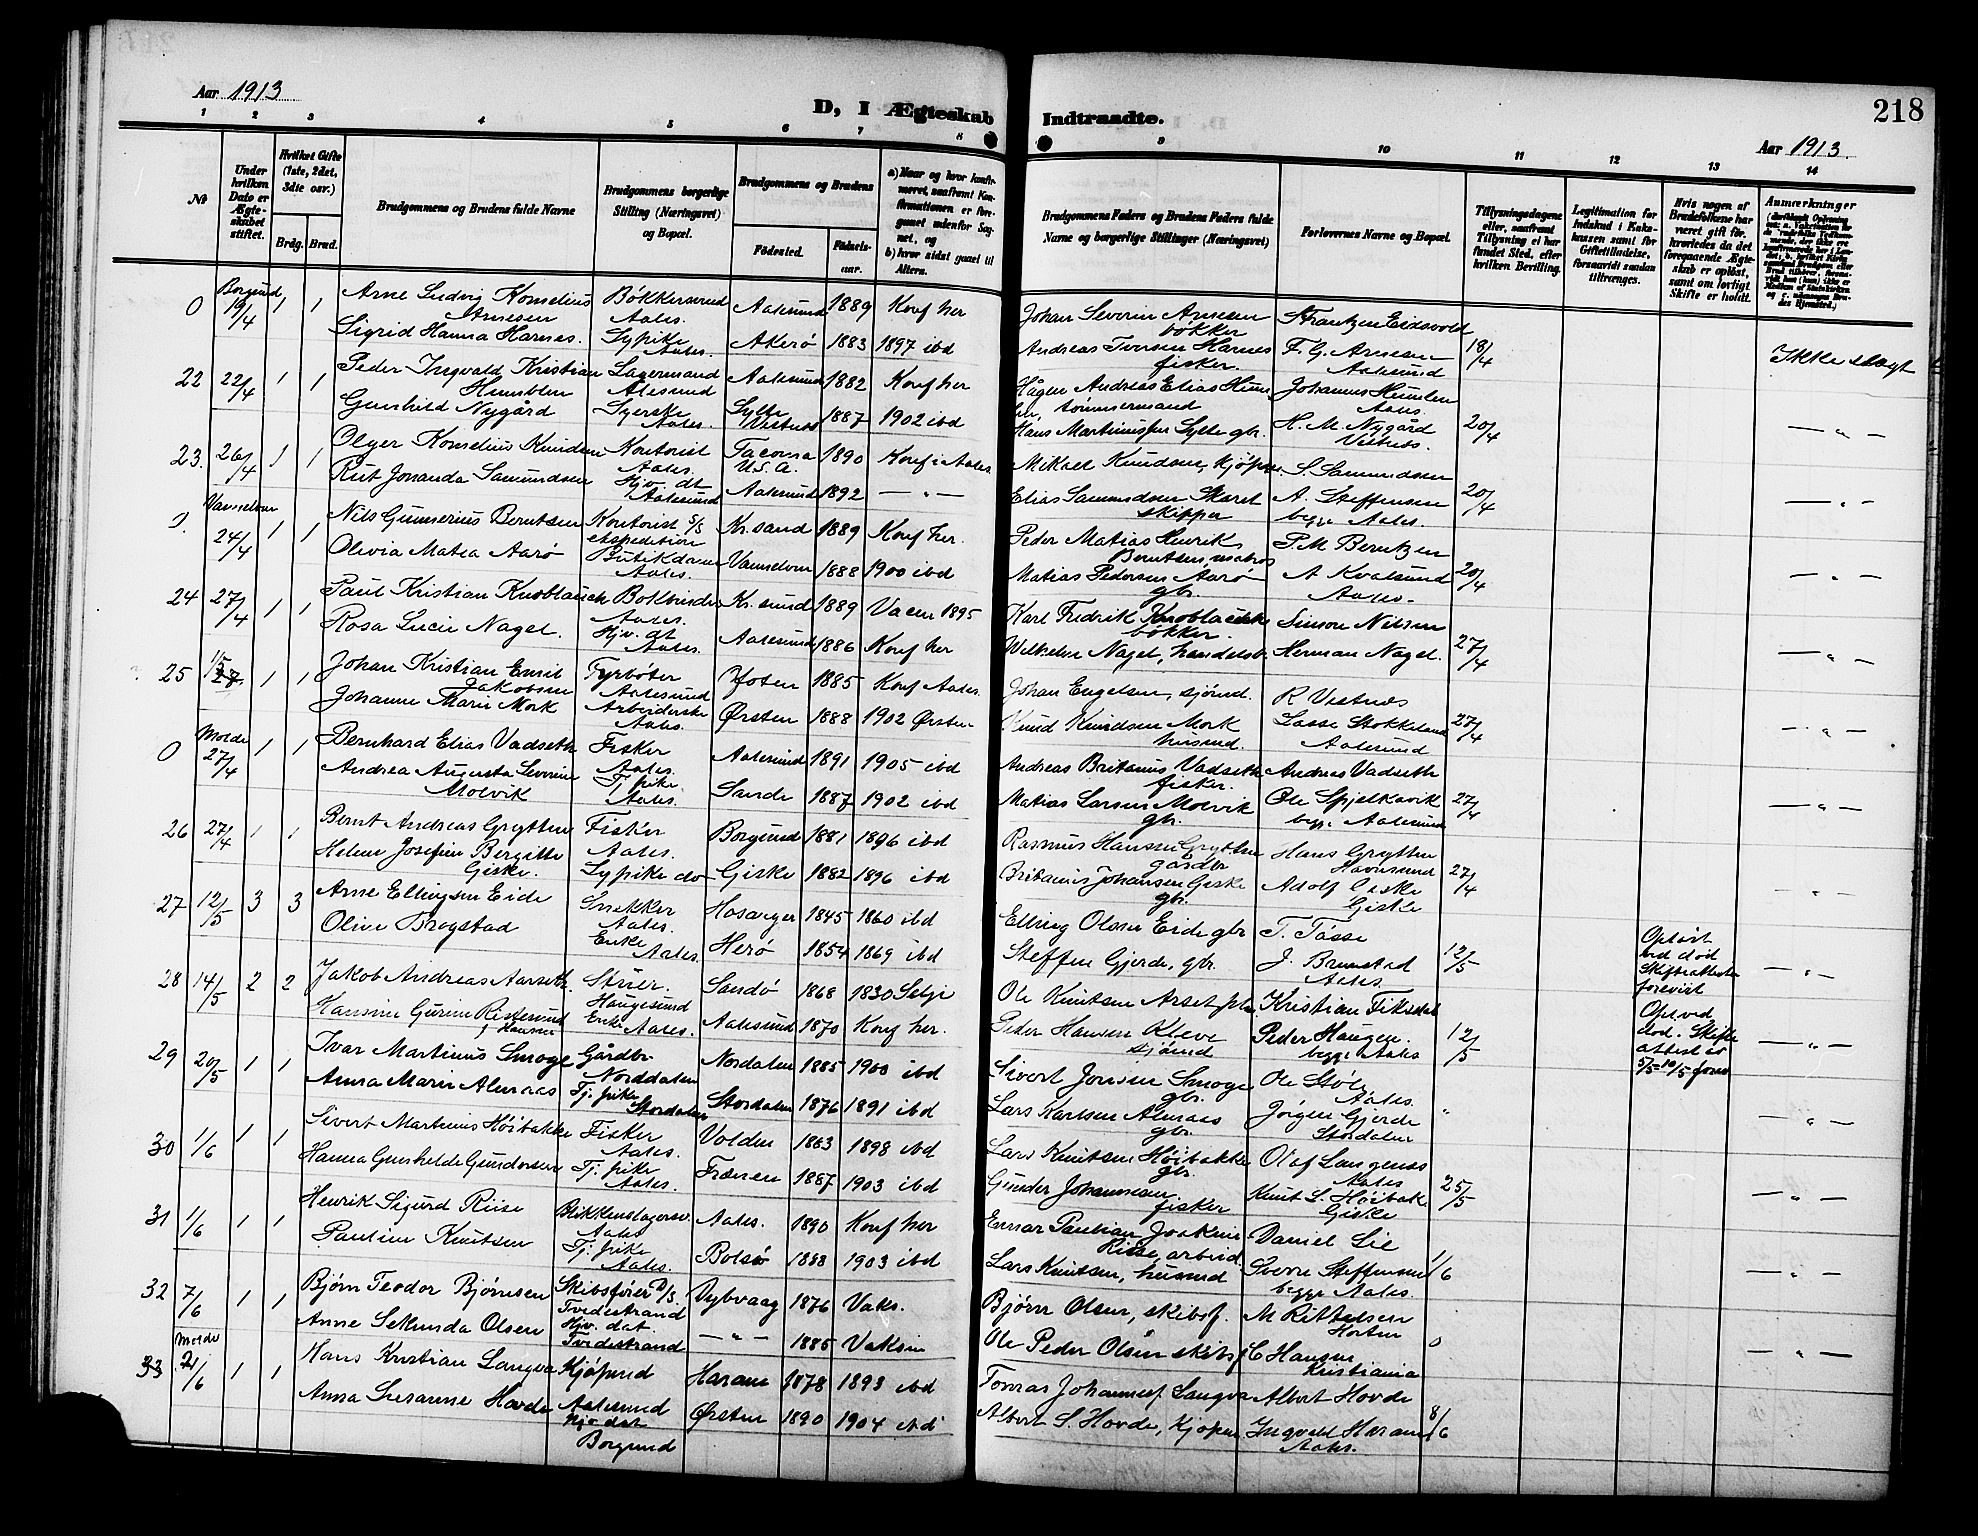 218
Aar 1913
D, I Ægteskab Indtraadte.
Aar 1913.
1 2 3 4 5 6 7 8 9 10 11 12 13 14
No
Under hvilken Dato er Ægteskabet stiftet.
Hvilket Gifte (1ste, 2det, 3die osv.)
Brdg. Brud.
Brudgommens og Brudens fulde Navne
Brudgommens borgerlige Stilling (Næringsvei) og Bopæl.
Brudgommens og Brudens
Fødested. Fødselsaar.
a) Naar og hvor konfirmeret, saafremt Konfirmationen er foregaaet udenfor Sognet, og
b) hvor sidst gaaet til Alters.
Brudgommens Faders og Brudens Faders fulde Navne og borgerlige Stillinger (Næringsvei)
Forlovernes Navne og Bopæl.
Tillysningsdagene eller, saafremt Tillysning ei har fundet Sted, efter hvilken Bevilling.
Legitimation for Indskud i Enkekassen samt for Giftetilladelse, forsaavidt saadan tiltrænges.
Hvis nogen af Brudefolkene har været gift før, hvorledes da det foregaaende Ægteskab er opløst, samt om lovligt Skifte er holdt.
Anmærkninger
0 Borgund 19/4 1 1 Arne Ludvig Kornelius Arnesen Bøkkersvend Aales. Aalesund 1889 Konf her Johan Severin Arnesen bøkker Frantzen Eidsvold
Sigrid Hanna Harnes. Sypike Aales. Akerø 1883 1897 ibd Andreas Iversen Harnes fisker. F. G. Arnesen Aalesund 18/4 Ikke slægt
22 22/4 1 1 Peder Ingvald Kristian Humblen Lagermand Alesund Aalesund 1882 Konf her Hågen Andreas Elias Humblen, tømmermand Johannes Humlen Aales.
Gunhild Nygård Syerske Aales. Sylte Vestnes 1887 1902 ibd Hans Martinus Sylte gbr. H. M. Nygård Vestnes. 20/4 — " —
23. 26/4 1 1 Olger Kornelius Knudsen Kontorist Aales. Tacoma U.S.A. 1890 Konf i Aales. Mikael Knudsen, kjøpm S. Samundsen
Rut Jonanda Samundsen Hjv. dt Aalesund Aalesund 1892 — " — Elias Samundsen Skaret skipper A. Steffensen begge Aales. 20/4 — " —
0. Vannelven 24/4 1 1 Nils Gunnerius Berntsen Kontorist ekspedition Kr.sund 1889 Konf her. Peder Matias Henrik Berntsen, matros P. M. Berntzen
Olivia Matea Aarø Butikdame Aales. Vannelven 1888 1900 ibd Matias Pedersen Aarø gbr. A Kvalsund Aales. 20/4 — " —
24 27/4 1 1 Paul Kristian Knoblauch Bokbinder Aales. Kr.sund 1889 Vacen 1895 Karl Fredrik Knoblauch bøkker. Simon Nilsen
Rosa Lucie Nagel. Hjv. dt Aales. Aalesund 1886 Konf her Wilhelm Nagel, handelsb. Herman Nagel. 27/4 — " —
25 1/5 1 1 Johan Kristian Emil Jakobsen Fyrbøter Aalesund 1885 Konf Aales. Johan Engelsen, sjømd. R Vestnes
Johanne Marie Mork Arbeiderske Aales. Ørsten 1888 1902 Ørsten Knud Knudsen Mork husmd. Lasse Stokkeland Aalesund 27/4 — " —
0 Molde 27/4 1 1 Bernhard Elias Vadseth Fisker Aales. Aalesund 1891 1905 ibd Andreas Britanus Vadseth fisker. Andreas Vadseth
Andrea Augusta Severine Molvik Tj. pike Aales. Sande 1887 1902 ibd Matias Larsen Molvik gbr. Ole Spjelkavik begge Aalesund 27/4 — " —
26 27/4 1 1 Bernt Andreas Grytten Fisker Aales. Borgund 1881 1896 ibd Rasmus Hansen Grytten gårdbr Hans Grytten
Helene Josefine Bergitte Giske. Sypike do Giske 1882 1896 ibd Britanus Johansen Giske gbr. Adolf Giske Giske 27/4 — " —
27 12/5 3 3 Arne Ellingsen Eide Snekker Aales. Hosanger 1845 1860 ibd Elling Olsen Eide gbr T. Tåsse
Oline Brogstad Enke Aales. Herø 1854 1869 ibd Steffen Gjerde, gbr. J. Brunstad Aales. 12/5 Opløst ved død Skifteattester forevist — " —
28 14/5 2 2 Jakob Andreas Aarseth. Stuer. Haugesund Sandø 1868 1830 Selje Ole Knutsen Arset Kristian Fiksdal
Hansine Gurine Ristesund f. Hansen Enke Aales. Aalesund 1870 Konf her. Peder Hansen Kleve sjømd Peder Haugen. begge Aales 12/5 Opl. ved død. Skifteattest av 5/5-10/5 forev — " —
29 20/5 1 1 Ivar Martinus Smoge Gårdbr Norddalen Nordalen 1885 1900 ibd Sivert Jonsen Smoge gbr. Ole Støle Aales.
Anna Marie Alnaes Tj. pike Stordalen Stordalen 1876 1891 ibd Lars Karlsen Alnaes gbr. Jörgen Gjerde Stordalen " — " —
30 1/6 1 1 Sivert Martinus Höibakke Fisker Aales. Volden 1883 1898 ibd Lars Knutsen Höibakke gbr. Olaf Langenes Aales
Hanna Gunhelde Gundersen Tj. pike Aales. Frænen 1887 1903 ibd Gunder Johannesen fisker Knut L. Höibak Giske 25/5 — " —
31 1/6 1 1 Henrik Sigurd Riise Blikkenslagersv. Aales Aales. 1890 Konf her Einar Paulian Joakim Riise, arbeid Daniel Lie
Pauline Knutsen Tj. pike Aales. Bolsø 1883 1903 ibd Lars Knutsen, husmd Sverre Steffensen begge Aales. 1/6 — " —
32 7/6 1 1 Bjørn Teodor Bjørnsen Skibsfører D/S Tvedestrand Dybvaag 1876 Vaks. Bjørn Olsen, skibsf. M Rittelsen Horten
Anne Sekunda Olsen Hjv. dat. Tvedestrand — " — 1885 Vaksin Ole Peder Olsen skibsf C Hansen Kristiania 0 — " —
33 Molde 7/6 1 1 Hans Kristian Langva Kjøpmd Aalesund Haram 1878 1893 ibd Tomas Johannesf. Langva Albert Hovde
Anna Susanne Hovde Hjv dat Borgund Ørsten 1890 1904 ibd Albert S. Hovde, Kjøpm Ingvald Haram Aales. 8/6